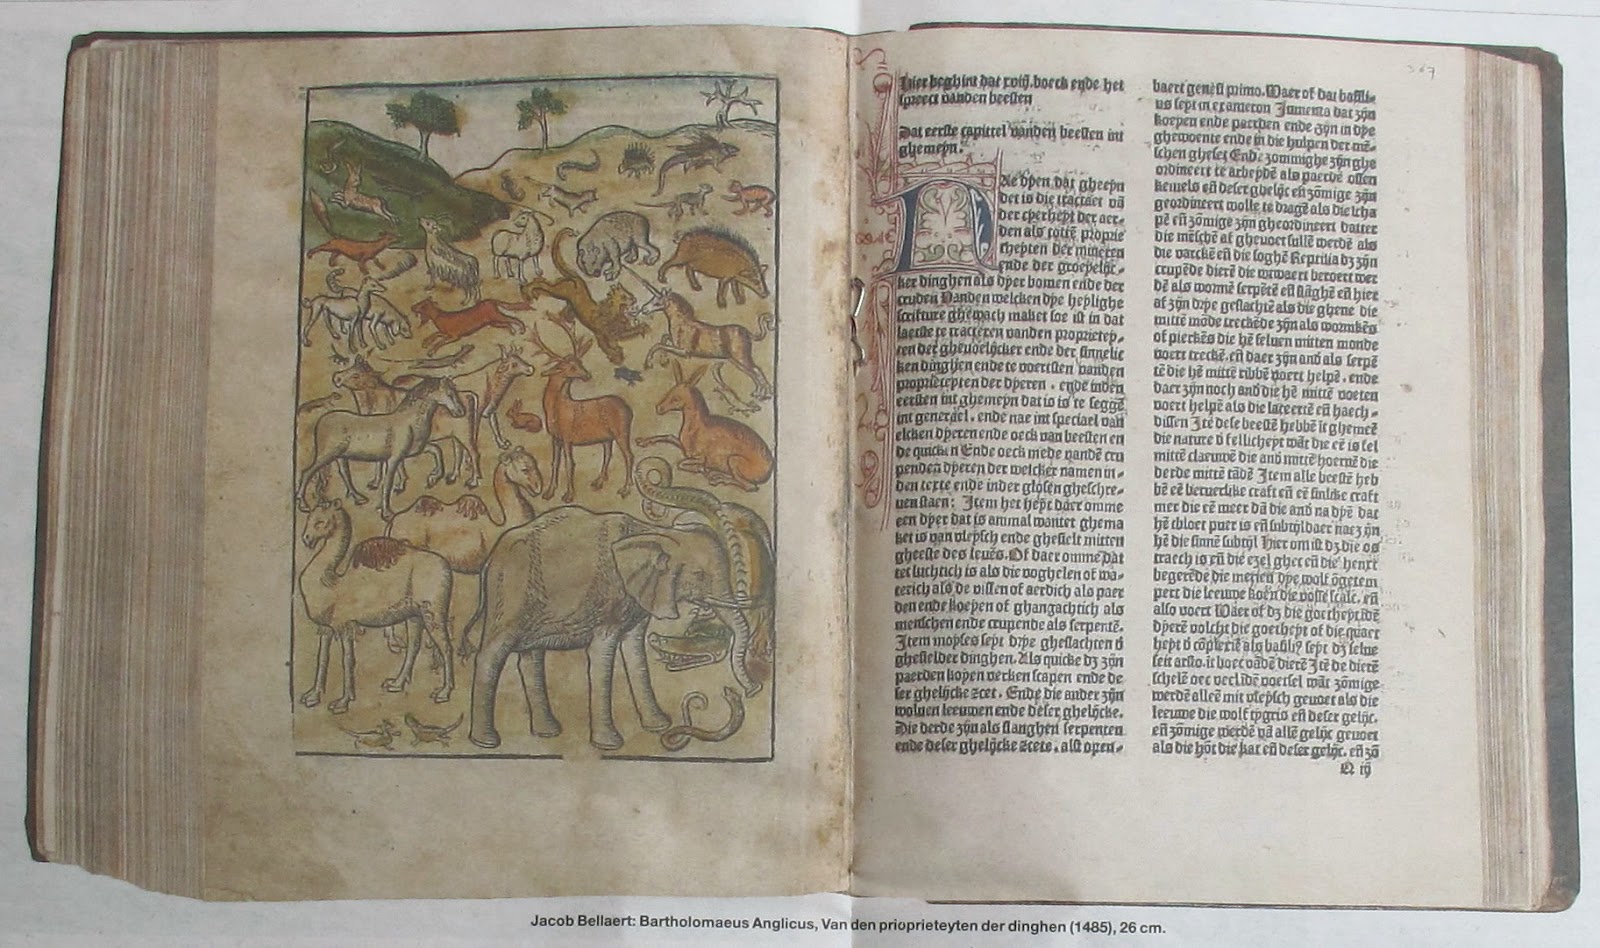 367
Hier beghint dat xviij. boeck ende het
spreect vanden beesten
Dat eerste capittel vanden beesten int
ghemeyn.
NAe dyen dat gheeyn
det is die tractaet vā
der cyerheyt der aer-
den als totte proprie
theyten der mineren
ende der groeyelijc-
ker dinghen als dyer bomen ende der
cruden Vanden welcken dye heylighe
scrifture ghewach maket soe ist in dat
laetste te tracteren vanden proprietey-
ten der ghevoelijcker ende der sinnelic
ken dinghen ende te voertsten vanden
proprieteyten der dyeren. ende inden
eersten int ghemeyn dat is is te seggē
int generael. ende nae int speciael van
elcken dyeren ende oeck van beesten en
de quicken Ende oeck mede vandē cru
penden dyeren der welcker namen in-
den texte ende inder glosen gheschre-
uen staen: Item het heyt daer omme
een dyer dat is animal wantet ghema
ket is van vleysch ende ghesielt mitten
gheeste des leuēs. Of daer omme dat
tet luchtich is als die voghelen of wa-
terich als de vissen of aerdich als paer
den ende koeyen of ghangachtich als
menschen ende crupende als serpentē.
Item moyses seyt drye gheslachten d̄
ghesielder dinghen. Als quicke dz zyn
paerden koyen verken scapen ende de
ser ghelijcke zcet. Ende die ander zyn
woluen leeuwen ende deser ghelijcke.
Die derde zyn als slanghen serpenten
ende deser ghelijcke zcete. alst open-
baert genesis primo. Maer of dat basili-
us seyt in exameron Jumenta dat zyn
koeyen ende paerden ende zyn in dye
ghewoente ende in die hulpen der mē-
schen gheset Ende zommighe zyn ghe
ordineert te arbeydē als paerdē ossen
kemels eñ deser ghelijc eñ zōmige zyn
geordineert wolle te dragē als die scha
pē eñ zōmige zyn gheordineert datter
die mēschē af gheuoet sullē werdē als
die varckē eñ die soghē Reptilia dz zyn
crupēde dierē die
als wormē serpētē eñ slāghē eñ hier
af zyn drye geslachtē als die ghene die
mittē mōde treckēde zyn als wormkēs
of pierkēs die hē seluen mitten monde
voert treckē. eñ daer zyn and als serpē
tē die hē mittē ribbē voert helpē. ende
daer zyn noch and die hē mittē voeten
voert helpē als die lacertē eñ haech-
dissen Itē dese beestē hebbē it ghemeē
die nature d̄ fellicheyt wāt die eē is fel
mittē claewē die and mittē hoernē die
derde mittē tādē Item alle beestē heb
bē eē beruerlike craft eñ eē sinlike craft
mer die eē meer dā die and na dye dat
hē bloet puer is eñ subtyl daer nae zyn
hē die sinnē subtyl Hier om ist dz die os
traech is eñ die ezel ghec eñ die henxt
begerēde die merien dye wolf ōgetem
pert die leeuwe koen die vosse scalc. eñ
also voert Maer of dz die goetheyt dē
dyerē volcht die goetheyt of die quaet
heyt d̄ cōplexiē als basilius seyt dz selue
seit aristo. it boec vādē dierē Itē de dierē
schelē oec veelsidē voetsel wāt zōmige
werdē alleē mit vleysch geuoet als die
leeuwe die wolf tygris eñ deser gelijc.
eñ zōmige werdē vā allē gelijc geuoet
als die hōt die kat eñ deser gelijc. eñ zō
Q iij
Jacob Bellaert: Bartholomaeus Anglicus, Van den prioprieteyten der dinghen (1485), 26 cm.